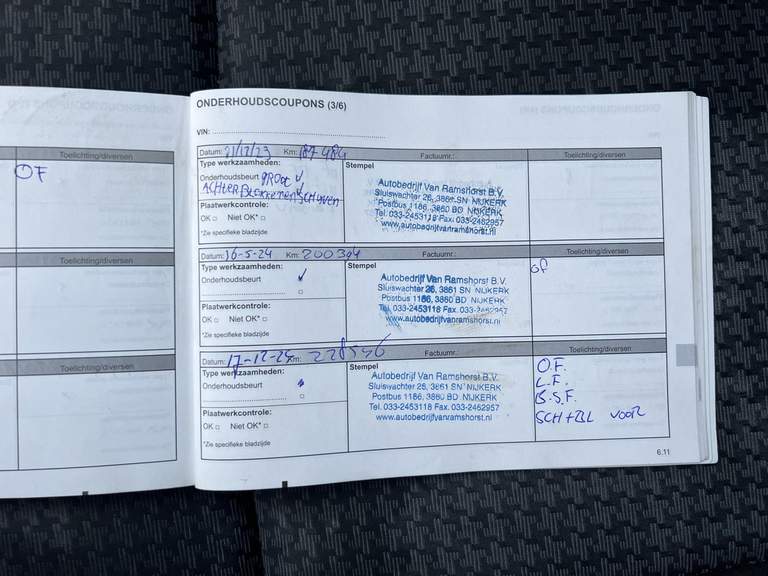 Toelichting/diversen
OF
Toelichting/diversen
Toelichting/diversen
ONDERHOUDSCOUPONS (3/6)
VIN:
Datum: 21/12/23 Km: 187 484 Factuurnr.: Toelichting/diversen
Type werkzaamheden: Stempel
Onderhoudsbeurt GROOT ✓
ACHTER BLOKKEN EN SCHIJVEN
Plaatwerkcontrole:
OK □ Niet OK* □
*Zie specifieke bladzijde
Autobedrijf Van Ramshorst B.V.
Sluiswachter 26, 3861 SN NIJKERK
Postbus 1186, 3860 BD NIJKERK
Tel. 033-2453118 Fax. 033-2462957
www.autobedrijfvanramshorst.nl
Datum: 16-5-24 Km: 200394 Factuurnr.: Toelichting/diversen
Type werkzaamheden: Stempel
Onderhoudsbeurt ✓
Plaatwerkcontrole:
OK □ Niet OK* □
*Zie specifieke bladzijde
Autobedrijf Van Ramshorst B.V.
Sluiswachter 26, 3861 SN NIJKERK
Postbus 1186, 3860 BD NIJKERK
Tel. 033-2453118 Fax. 033-2462957
www.autobedrijfvanramshorst.nl
OF
Datum: 17-12-24 Km: 228546 Factuurnr.: Toelichting/diversen
Type werkzaamheden: Stempel
Onderhoudsbeurt
Plaatwerkcontrole:
OK □ Niet OK* □
*Zie specifieke bladzijde
Autobedrijf Van Ramshorst B.V.
Sluiswachter 26, 3861 SN NIJKERK
Postbus 1186, 3860 BD NIJKERK
Tel. 033-2453118 Fax. 033-2462957
www.autobedrijfvanramshorst.nl
O.F.
L.F.
B.S.F.
SCH+BL VOOR
6.11